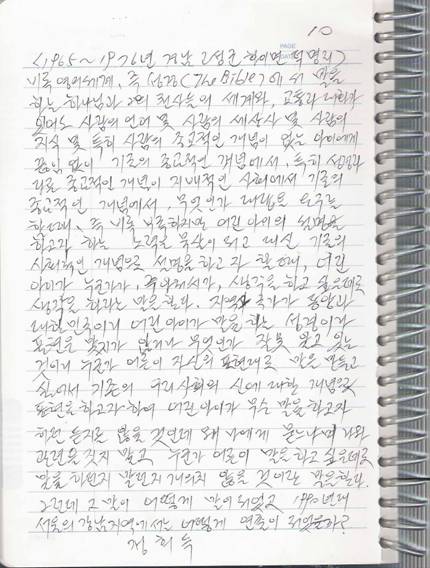 10
PAGE
DATE
<1965~1976년 경남 고성군 하이면 덕명리>
비록 영의세계, 즉 성경(The Bible)에서 말을
하는 하나님과 그의 천사들의 세계와, 교통과 대화가
되어도 사람의 언어 및 사람의 세상사 및 사람의
지식 및 특히 사람의 종교적인 개념이 없는 아이에게
끊임 없이 기존의 종교적인 개념에서, 특히 성경과
다른 종교적인 개념이 지배적인 사회에서 기존의
종교적인 개념에서, 무엇인가 대답을 요구를
하는데, 즉 비록 부족하지만 어린 아이의 설명을
하고자 하는 노력은 무산이 되고 대신 기존의
사회적인 개념으로 설명을 하고자 할 때, 어린
아이가 누군가, 와서, 생각을 하고 싶은대로
생각을 하라는 말을 한다. 지역 국가가 동양과
대한민국이니 어린 아이가 말을 하는 성경이란
표현은 맞지가 않거나 무엇인가 잘못 알고 있는
것이니 누군가 어른이 자신의 표현대로 말을 만들고
싶어서 기존의 우리사회의 신에 대한 개념으로
표현을 하고자 하여 어린 아이가 무슨 말을 하고자
하였든지 않을 것인데 왜 나에게 묻느냐며 나와
관련을 짓지 말고 누군가 어른이 말을 하고 싶은대로
말을 하던지 말던지 개의치 않을 것이란 말을 한다.
그런데 그 말이 어떻게 말이 되었고 1990년대
서울의 강남지역에서는 어떻게 연출이 되었을까?
정희득